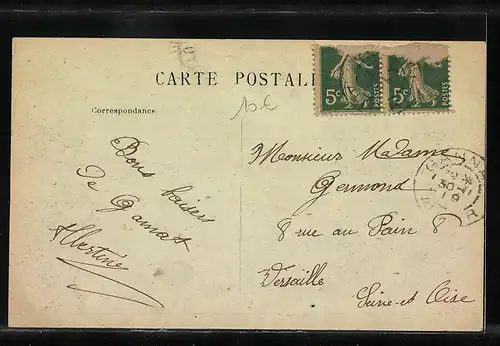 CARTE POSTALE
5c
5c
Correspondance
10€
Bons baisers
de Gannat
Albertine
Monsieur Madame
Germond
8 rue au Pain 8
Versaille
Seine-et Oise
GANNAT
30-1
19